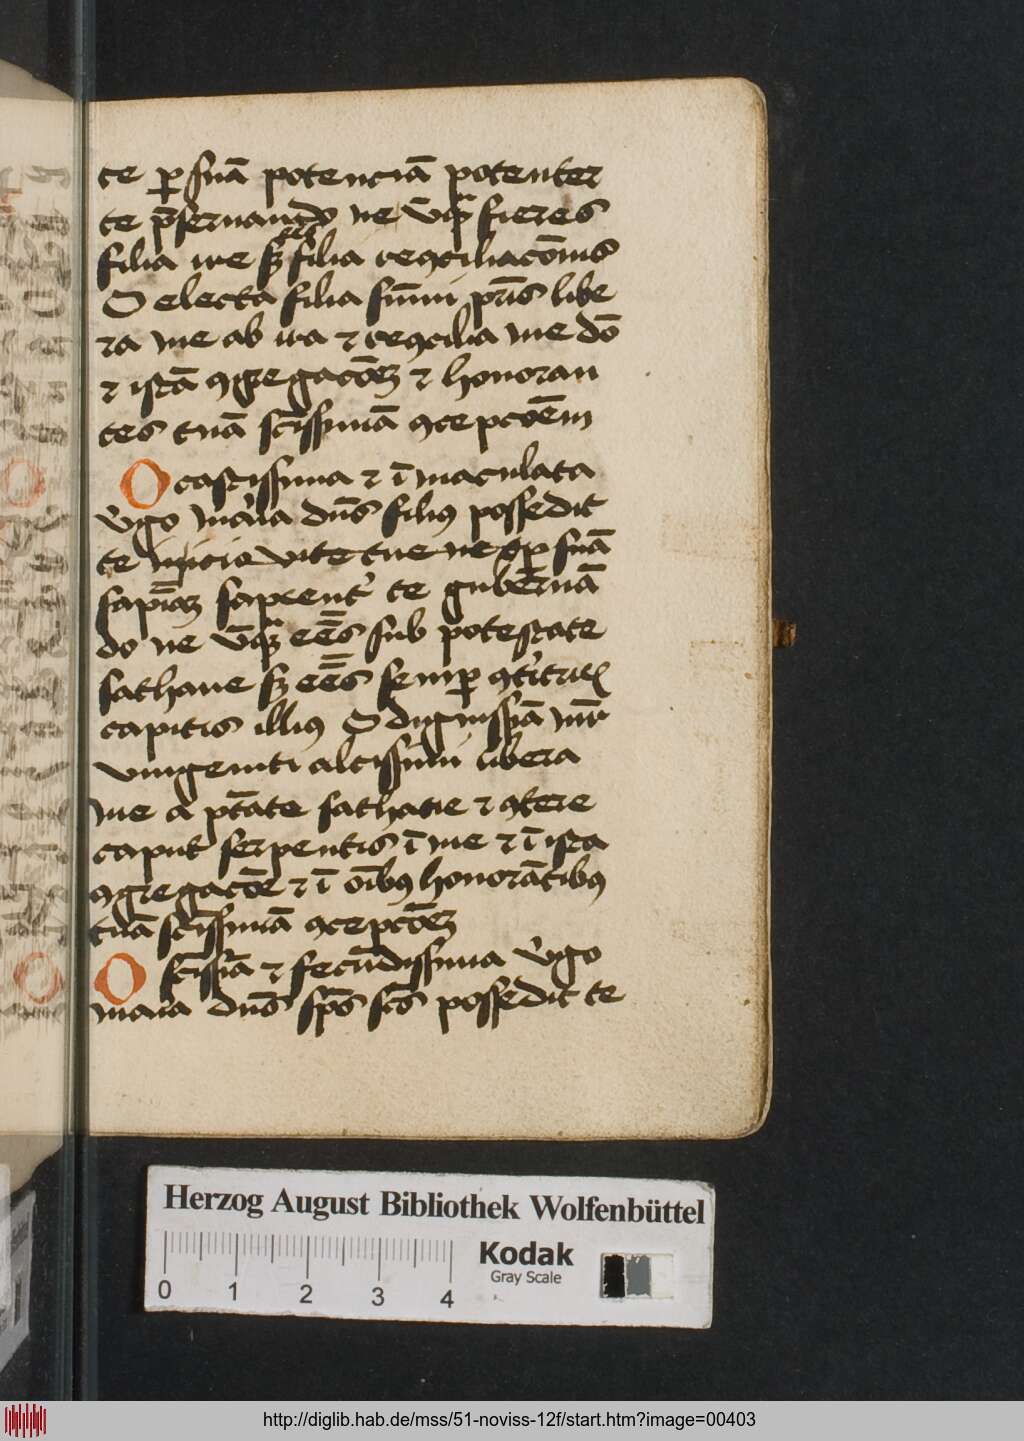 te ꝑ suā potenciā potenter
te p̄seruando ne vͫꝗ fieres
filia ire sꝫ filia reꝯciliacōnis
O electa filia sūmi pr̄is libe
ra me ab ira ⁊ reꝯcilia me dō
⁊ istā ꝯgregacōeꝫ ⁊ honoran
tes tuā sc̄issimā ꝯcepcōem
O castissima ⁊ ī maculata
v̓go maria dn̄s filiꝯ possedit
te inicio vite tue ꝑ suā
sapīaꝫ sapient̓ te gubernā
do ne vͫꝗ eēs sub potestate
sathane sꝫ eēs semꝑ ꝯt̓trix
capitis illiꝯ O dignissīa mr̄
vnigeniti altissimi libera
me a ptāte sathane ⁊ ꝯtere
caput serpentis ī me ⁊ ī ista
ꝯgregacōe ⁊ ī oībꝯ honorātibꝯ
tuā sc̄issimā ꝯcepcōeꝫ
O sc̄issīa ⁊ fecūdissima v̓go
maria dn̄s sp̄s sc̄s possedit te
Herzog August Bibliothek Wolfenbüttel
Kodak
Gray Scale
0 1 2 3 4
http://diglib.hab.de/mss/51-noviss-12f/start.htm?image=00403